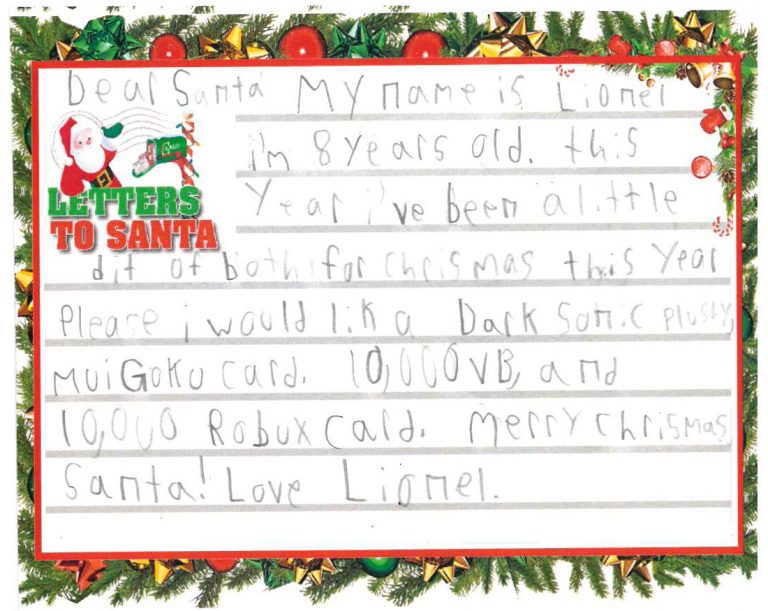 Dear Santa My name is Lionel
i'm 8 years old. this
LETTERS
TO SANTA
Year i've been a little
dit of both. for chrismas this Year
Please i would lik a Dark Sonic plushy,
MuiGoku card. 10,000 VB, and
10,000 Robux card. Merry chrismas
Santa! Love Lionel.